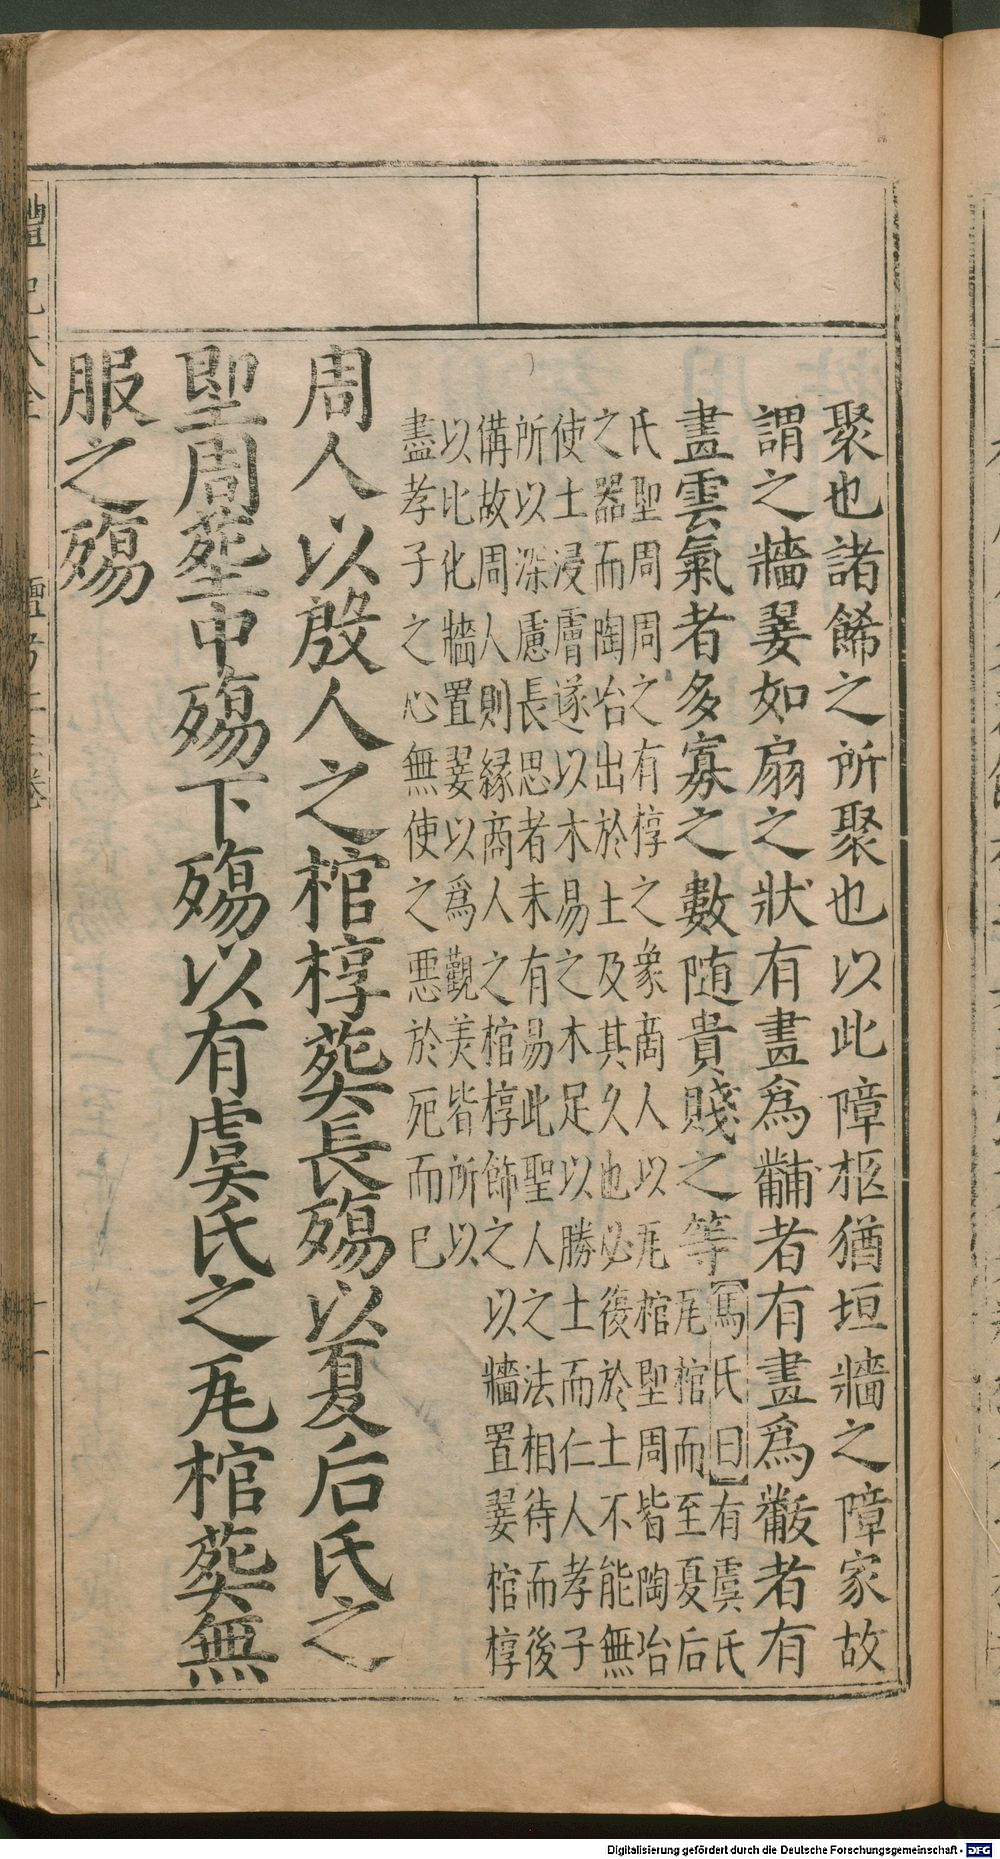 聚也諸餙之所聚也以此障柩猶垣牆之障家故
謂之牆翣如扇之狀有畫爲黼者有畫爲黻者有
畫雲氣者多寡之數随貴賤之等
馬氏曰有虞氏
瓦棺而至夏后
氏堲周周之有椁之象商人以瓦棺堲周皆陶冶
之器而陶冶出於土及其久也必復於土不能無
使土浸膚遂以木易之木足以勝土而仁人孝子
所以深慮長思者未有易此聖人之法相待而後
備故周人則縁商人之棺椁飾之以牆置翣棺椁
以比化牆置翣以爲觀美皆所以
盡孝子之心無使之悪於死而已
周人以殷人之棺椁葬長殤以夏后氏之
堲周葬中殤下殤以有虞氏之瓦棺葬無
服之殤
禮記大全
Digitalisierung gefördert durch die Deutsche Forschungsgemeinschaft - DFG